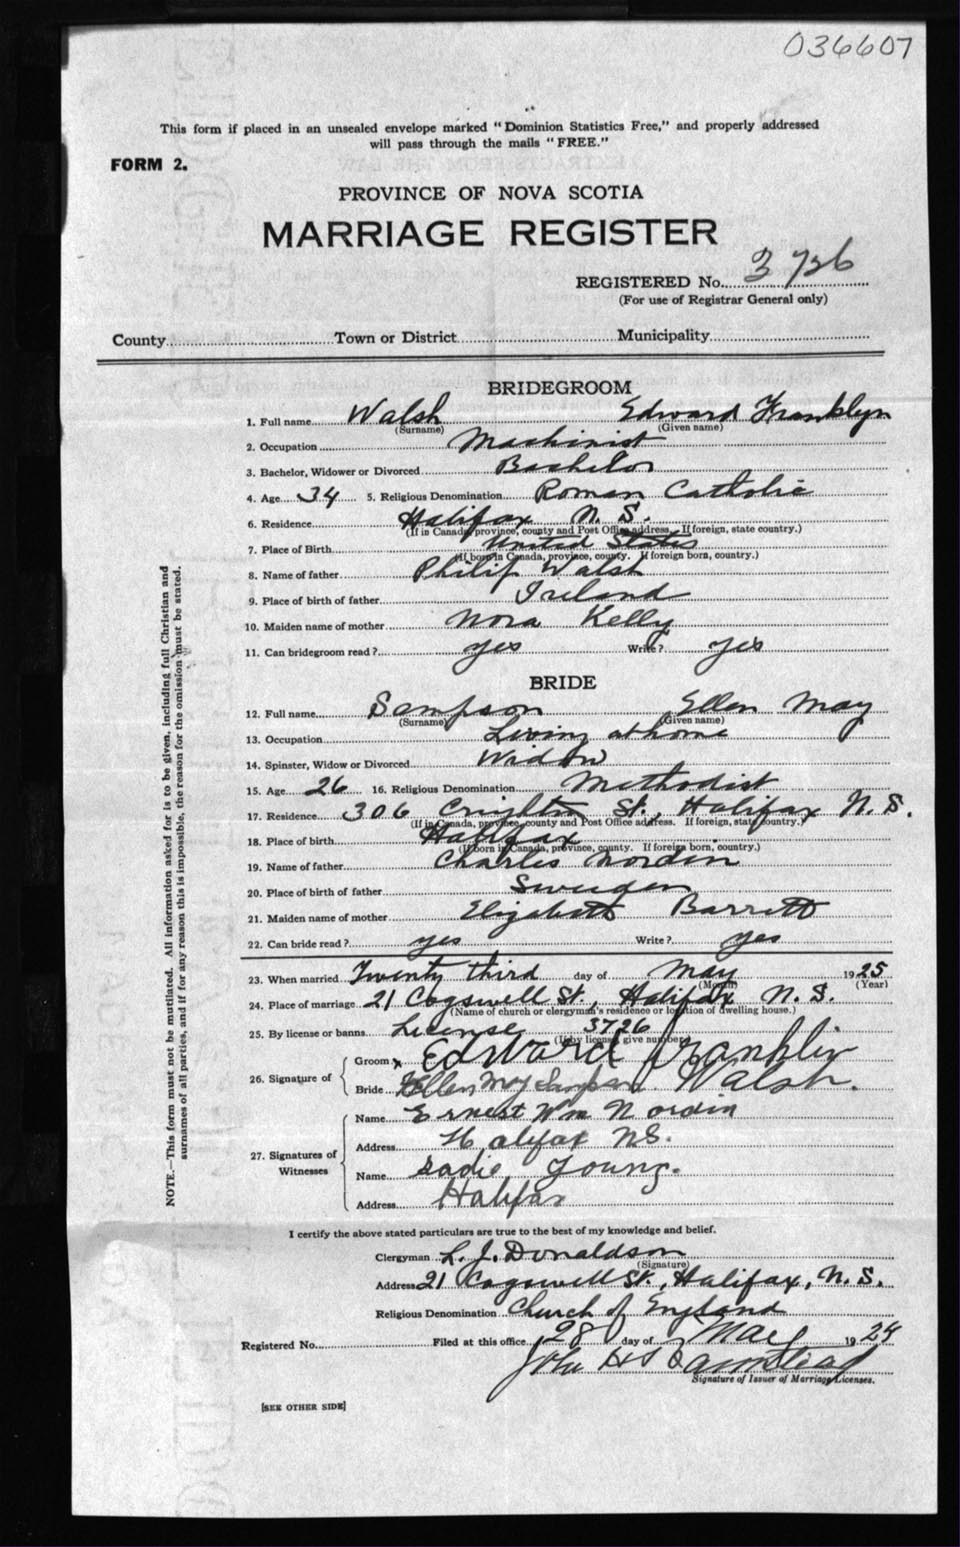 036607
This form if placed in an unsealed envelope marked "Dominion Statistics Free," and properly addressed
will pass through the mails "FREE."
FORM 2.
PROVINCE OF NOVA SCOTIA
MARRIAGE REGISTER
REGISTERED No. 3726
(For use of Registrar General only)
County Town or District Municipality
BRIDEGROOM
1. Full name Walsh Edward Franklyn
(Surname) (Given name)
2. Occupation Machinist
3. Bachelor, Widower or Divorced Bachelor
4. Age 34 5. Religious Denomination Roman Catholic
6. Residence Halifax N. S.
(If in Canada, province, county and Post Office address. If foreign, state country.)
7. Place of Birth United States
(If born in Canada, province, county. If foreign born, country.)
8. Name of father Philip Walsh
9. Place of birth of father Ireland
10. Maiden name of mother Nora Kelly
11. Can bridegroom read? yes Write? yes
BRIDE
12. Full name Sampson Ellen May
(Surname) (Given name)
13. Occupation Living at home
14. Spinster, Widow or Divorced Widow
15. Age 26 16. Religious Denomination Methodist
17. Residence 306 Crighton St., Halifax N. S.
(If in Canada, province, county and Post Office address. If foreign, state country.)
18. Place of birth Halifax
(If born in Canada, province, county. If foreign born, country.)
19. Name of father Charles Nordin
20. Place of birth of father Sweden
21. Maiden name of mother Elizabeth Barrett
22. Can bride read? yes Write? yes
23. When married Twenty third day of May 1925
(Month) (Year)
24. Place of marriage 21 Cogswell St., Halifax N. S.
(Name of church or clergyman's residence or location of dwelling house.)
25. By license or banns License 3726
(If by license, give number)
26. Signature of
Groom x Edward Franklin
Walsh.
Bride Ellen May Sampson.
27. Signatures of Witnesses
Name Ernest Wm Nordin
Address Halifax NS.
Name Sadie Young.
Address Halifax
I certify the above stated particulars are true to the best of my knowledge and belief.
Clergyman L. J. Donaldson
(Signature)
Address 21 Cogswell St., Halifax, N. S.
Religious Denomination Church of England
Registered No. Filed at this office 28 day of May 1924
John
Signature of Issuer of Marriage Licenses.
[SEE OTHER SIDE]
NOTE.—This form must not be mutilated. All information asked for is to be given, including full Christian and
surnames of all parties, and if for any reason this is impossible, the reason for the omission must be stated.